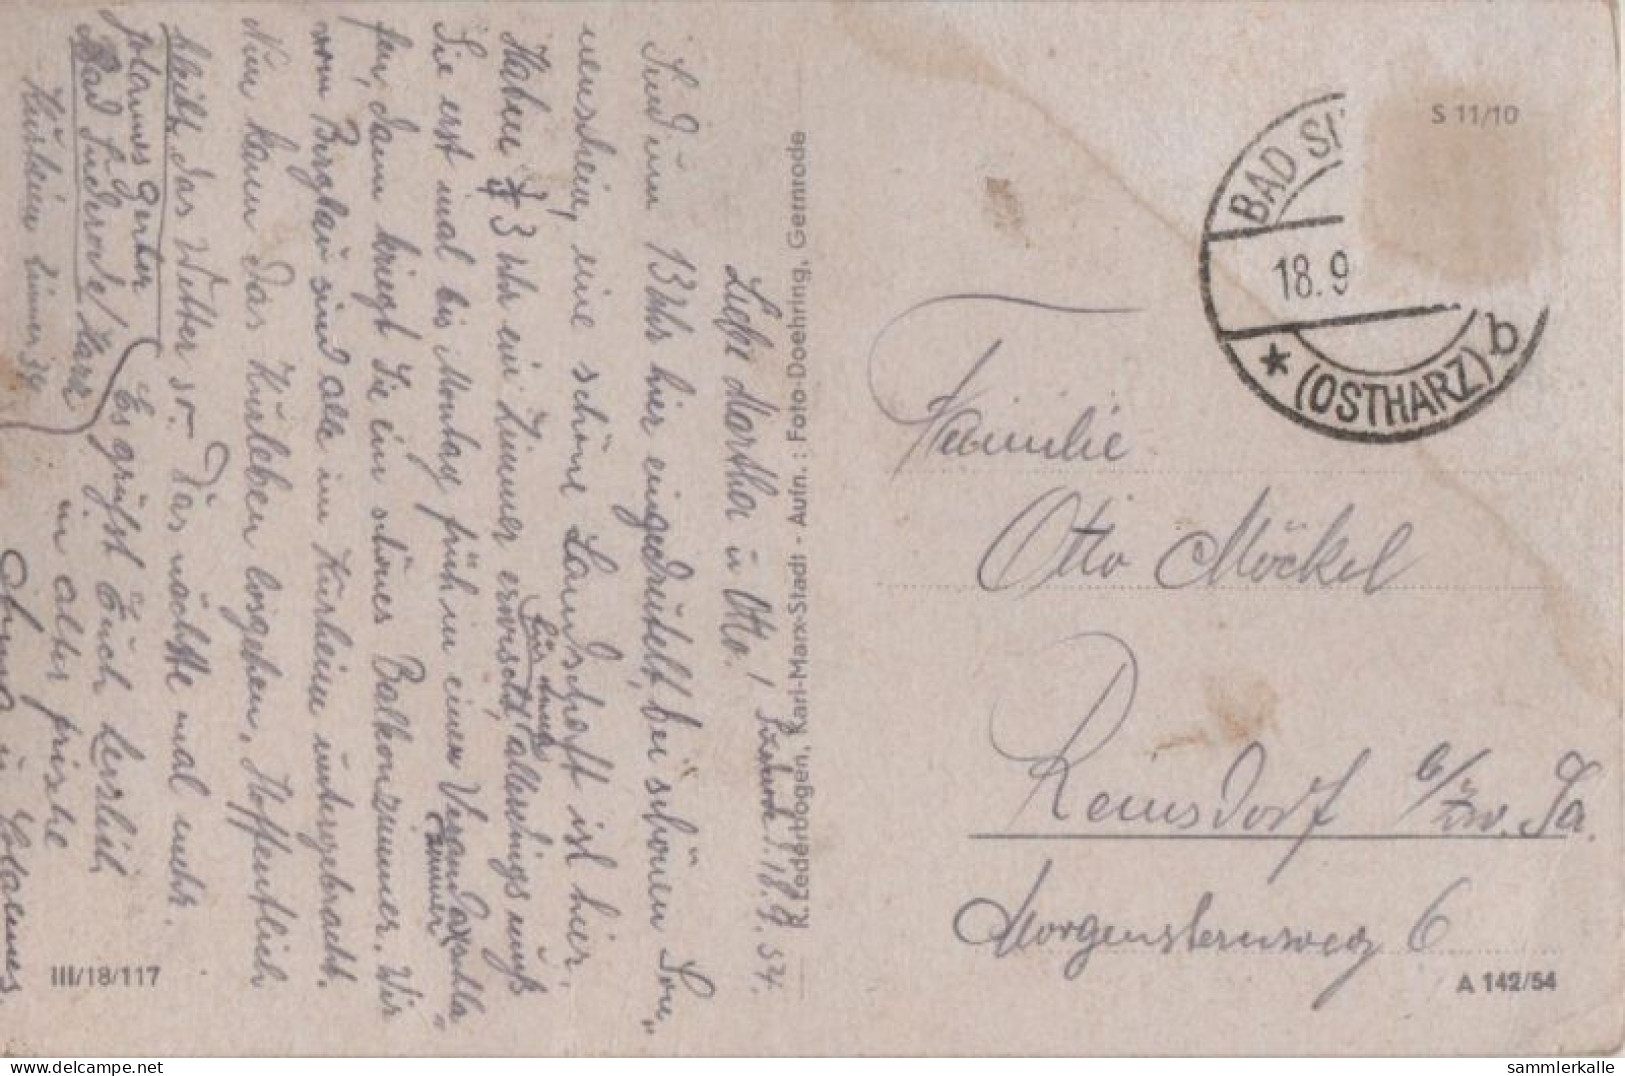 Suderode, d. 18.9.54.
Liebe Martha u. Otto!
Sind um 13 Uhr hier eingedrudelt, bei schönem Son„
nenschein, eine schöne Landschaft ist hier.
Haben 3 Uhr ein Zimmer erwischt, allerdings muß
für uns
Sie erst mal bis Montag früh in einem Veranda schla„
zimmer
fen, dann kriegt Sie ein schönes Balkonzimmer. Wir
vom Bergbau sind alle im Kurheim untergebracht.
Nun kann das Kurleben losgehen, Hoffentlich
bleibt das Wetter so. Das nächste mal mehr.
Es grüßt Euch herzlich
in alter frische
Johannes
Bad Suderode/Harz
Kurheim Zimmer 39
R. Lederbogen, Karl-Marx-Stadt - Aufn.: Foto-Doehring, Gernrode
III/18/117
S 11/10
BAD S
18.9
* (OSTHARZ) b
Familie
Otto Möckel
Reinsdorf b/Zw. Sa.
Morgensternweg 6
A 142/54
sammlerkalle